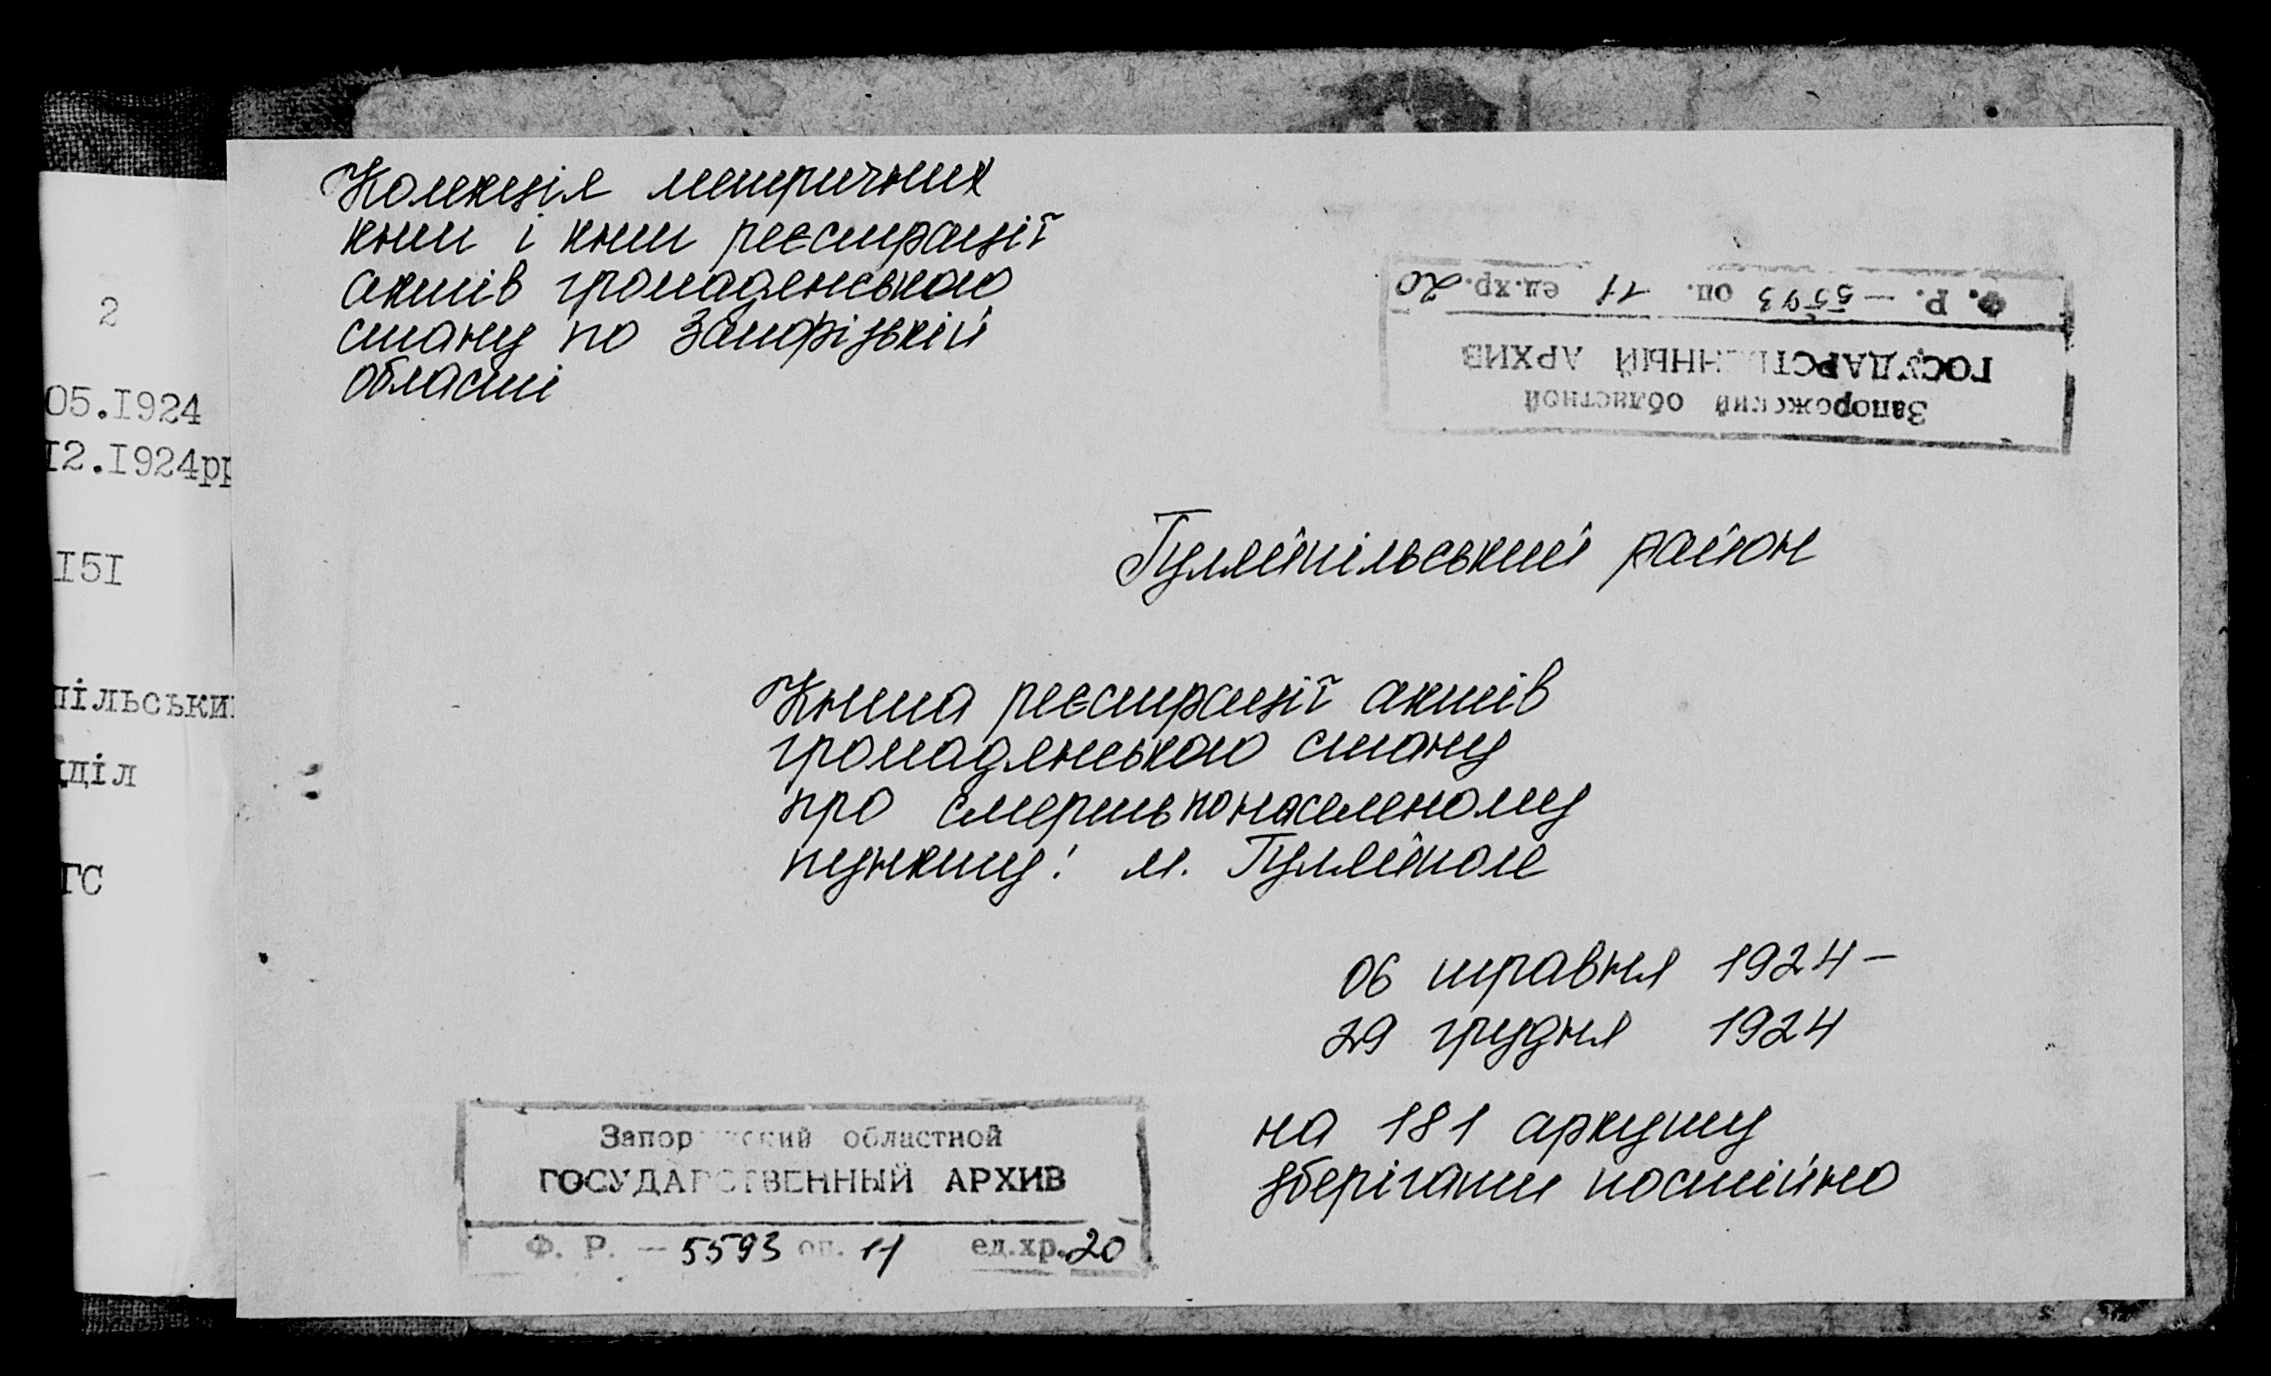 2
05.I924
I2.I924рр
I5I
пільськи
дділ
ГС
Колекція метричних
книг і книг реєстрації
актів громадянського
стану по Запорізькій
області
Ф. Р. — 5593 оп. 11 ед.хр. 20
ГОСУДАРСТВЕННЫЙ АРХИВ
Запорожский областной
Гуляйпільський район
Книга реєстрації актів
громадянського стану
про смерть по населеному
пункту: м. Гуляйполе
06 травня 1924 –
29 грудня 1924
на 181 аркушу
зберігати постійно
Запорожский областной
ГОСУДАРСТВЕННЫЙ АРХИВ
Ф. Р. — 5593 оп. 11 ед.хр. 20